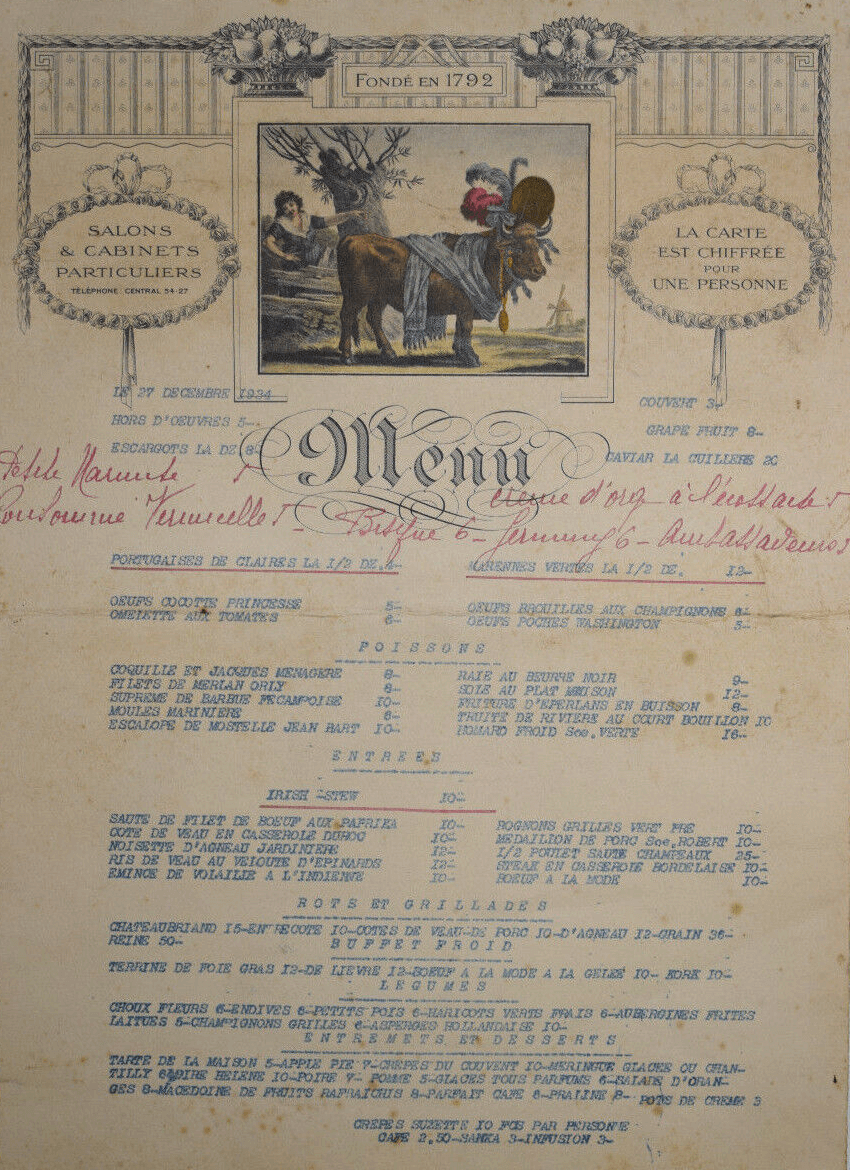 FONDÉ EN 1792
SALONS
& CABINETS
PARTICULIERS
TÉLÉPHONE : CENTRAL 54-27
LA CARTE
EST CHIFFRÉE
POUR
UNE PERSONNE
LE 27 DECEMBRE 1934
COUVERT 3-
HORS D'OEUVRES 5-
GRAPE FRUIT 8-
ESCARGOTS LA DZ 8-
CAVIAR LA CUILLERE 20
Menu
Petite Marmite 5
Creme d'org à l'écossaise 5
Consommé Vermicelle 5- Bisque 6- Germiny 6- Ambassadeurs
PORTUGAISES DE CLAIRES LA 1/2 DZ.
MARENNES VERTES LA 1/2 DZ. 12-
OEUFS COCOTTE PRINCESSE 5-
OEUFS BROUILLES AUX CHAMPIGNONS 8-
OMELETTE AUX TOMATES 6-
OEUFS POCHES WASHINGTON 5-
POISSONS
COQUILLE ST JACQUES MENAGERE 8-
RAIE AU BEURRE NOIR 9-
FILETS DE MERLAN ORLY 8-
SOLE AU PLAT MAISON 12-
SUPREME DE BARBUE FECAMPOISE 10-
FRITURE D'EPERLANS EN BUISSON 8-
MOULES MARINIERE 6-
TRUITE DE RIVIERE AU COURT BOUILLON 10
ESCALOPE DE MOSTELLE JEAN BART 10-
HOMARD FROID Sce.VERTE 16-
ENTREES
IRISH -STEW 10-
SAUTE DE FILET DE BOEUF AUX PAPRIKA 10-
ROGNONS GRILLES VERT PRE 10-
COTE DE VEAU EN CASSEROLE DUROC 10-
MEDAILLON DE PORC Sce.ROBERT 10-
NOISETTE D'AGNEAU JARDINIERE 12-
1/2 POULET SAUTE CHAMPEAUX 25-
RIS DE VEAU AU VELOUTE D'EPINARDS 12-
STEAK EN CASSEROLE BORDELAISE 10-
EMINCE DE VOLAILLE A L'INDIENNE 10-
BOEUF A LA MODE 10-
ROTS ET GRILLADES
CHATEAUBRIAND 15-ENTRECOTE 10-COTES DE VEAU-DE PORC 10-D'AGNEAU 12-GRAIN 36-
REINE 50-
BUFFET FROID
TERRINE DE FOIE GRAS 12-DE LIEVRE 12-BOEUF A LA MODE A LA GELEE 10- YORK 10-
LEGUMES
CHOUX FLEURS 6-ENDIVES 6-PETITS POIS 6-HARICOTS VERTS FRAIS 6-AUBERGINES FRITES
LAITUES 5-CHAMPIGNONS GRILLES 6-ASPERGES HOLLANDAISE 10-
ENTREMETS ET DESSERTS
TARTE DE LA MAISON 5-APPLE PIE 7-CREPES DU COUVENT 10-MERINGUE GLACEE OU CHAN-
TILLY 6-POIRE HELENE 10-POIRE 7- POMME 5-GLACES TOUS PARFUMS 6-SALADE D'ORAN-
GES 8-MACEDOINE DE FRUITS RAFRAICHIS 8-PARFAIT CAFE 8-PRALINE 8- POTS DE CREME 3
CREPES SUZETTE 10 FCS PAR PERSONNE
CAFE 2,50-SANKA 3-INFUSION 3-